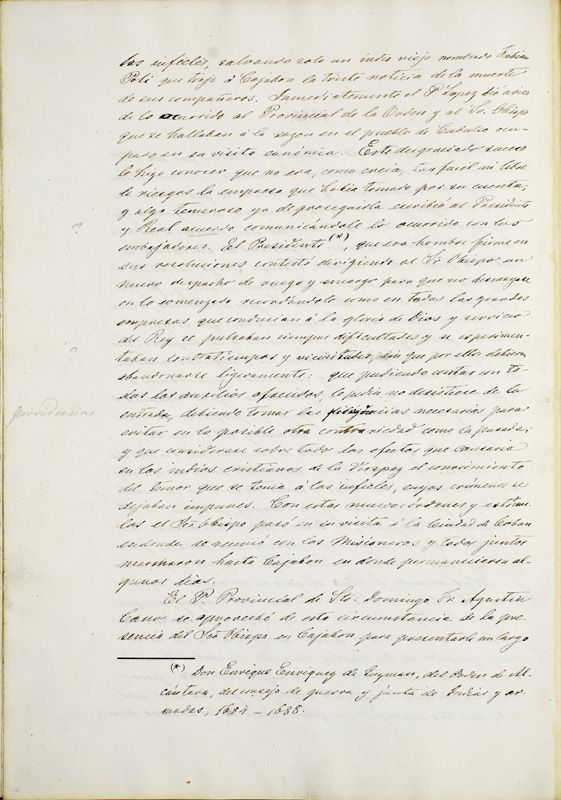 los infieles, salvando solo un indio viejo nombrado Fabian
Poli que trajo á Cajabon la triste noticia de la muerte
de sus compañeros. Inmediatamente el P. Lopez dió aviso
de lo ocurrido al Provincial de la Orden y al Sr. Obispo
que se hallaban á la sazon en el pueblo de Cubulco ocu-
pado en su visita canónica. Este desgraciado suceso
le hizo conocer que no era, como creia, tan facil ni libre
de riesgos la empresa que habia tomado por su cuenta;
y algo temeroso ya de proseguirla escribió al Presidente
y Real acuerdo comunicándole lo ocurrido con los
embajadores. El Presidente (*), que era hombre firme en
sus resoluciones contestó dirigiendo al Sr. Obispo un
nuevo despacho de ruego y encargo para que no desmayase
en lo comenzado recordándole como en todas las grandes
empresas que conducian á la gloria de Dios y servicio
del Rey se pulsaban siempre dificultades y se esperimen-
taban contratiempos y vicisitudes, sin que por ellos debiera
abandonarse ligeramente: que pudiendo contar con to-
dos los auxilios ofrecidos, le pedia no desistiese de la
providencias
entrada, debiendo tomar las necesarias para
evitar en lo posible otra contrariedad como la pasada;
y que considerase sobre todo los efectos que causaria
en los indios cristianos de la Verapaz el conocimiento
del temor que se tenia á los infieles, cuyos crímenes se
dejaban impunes. Con estas nuevas órdenes y estímu-
los el Sor. Obispo pasó en su visita á la Ciudad de Coban
en donde se reunió con los Misioneros y todos juntos
marcharon hasta Cajabon en donde permanecieron al-
gunos dias.
El P. Provincial de Sto. Domingo Fr. Agustin
Cano se aprovechó de esta circunstancia de la pre-
sencia del Sor. Obispo en Cajabon para presentarle un largo
(*) Don Enrique Enriquez de Guzman, del Orden de Al-
cántara, del consejo de guerra y junta de Indias y ar-
madas, 1684 - 1688.